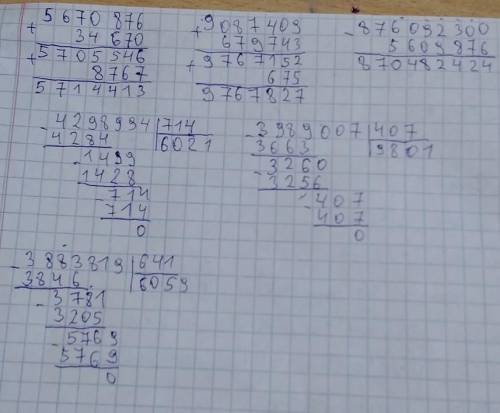 5670876
+ 34670
+ 5705546
8767
5714413
9087409
+ 679743
+ 9767152
675
9767827
- 876092300
5609876
870482424
- 4298994 | 714
4284 | 6021
- 1499
1428
- 714
714
0
- 3989007 | 407
3663 | 9801
- 3260
3256
- 407
407
0
- 3883819 | 641
3846 | 6059
- 3781
3205
- 5769
5769
0